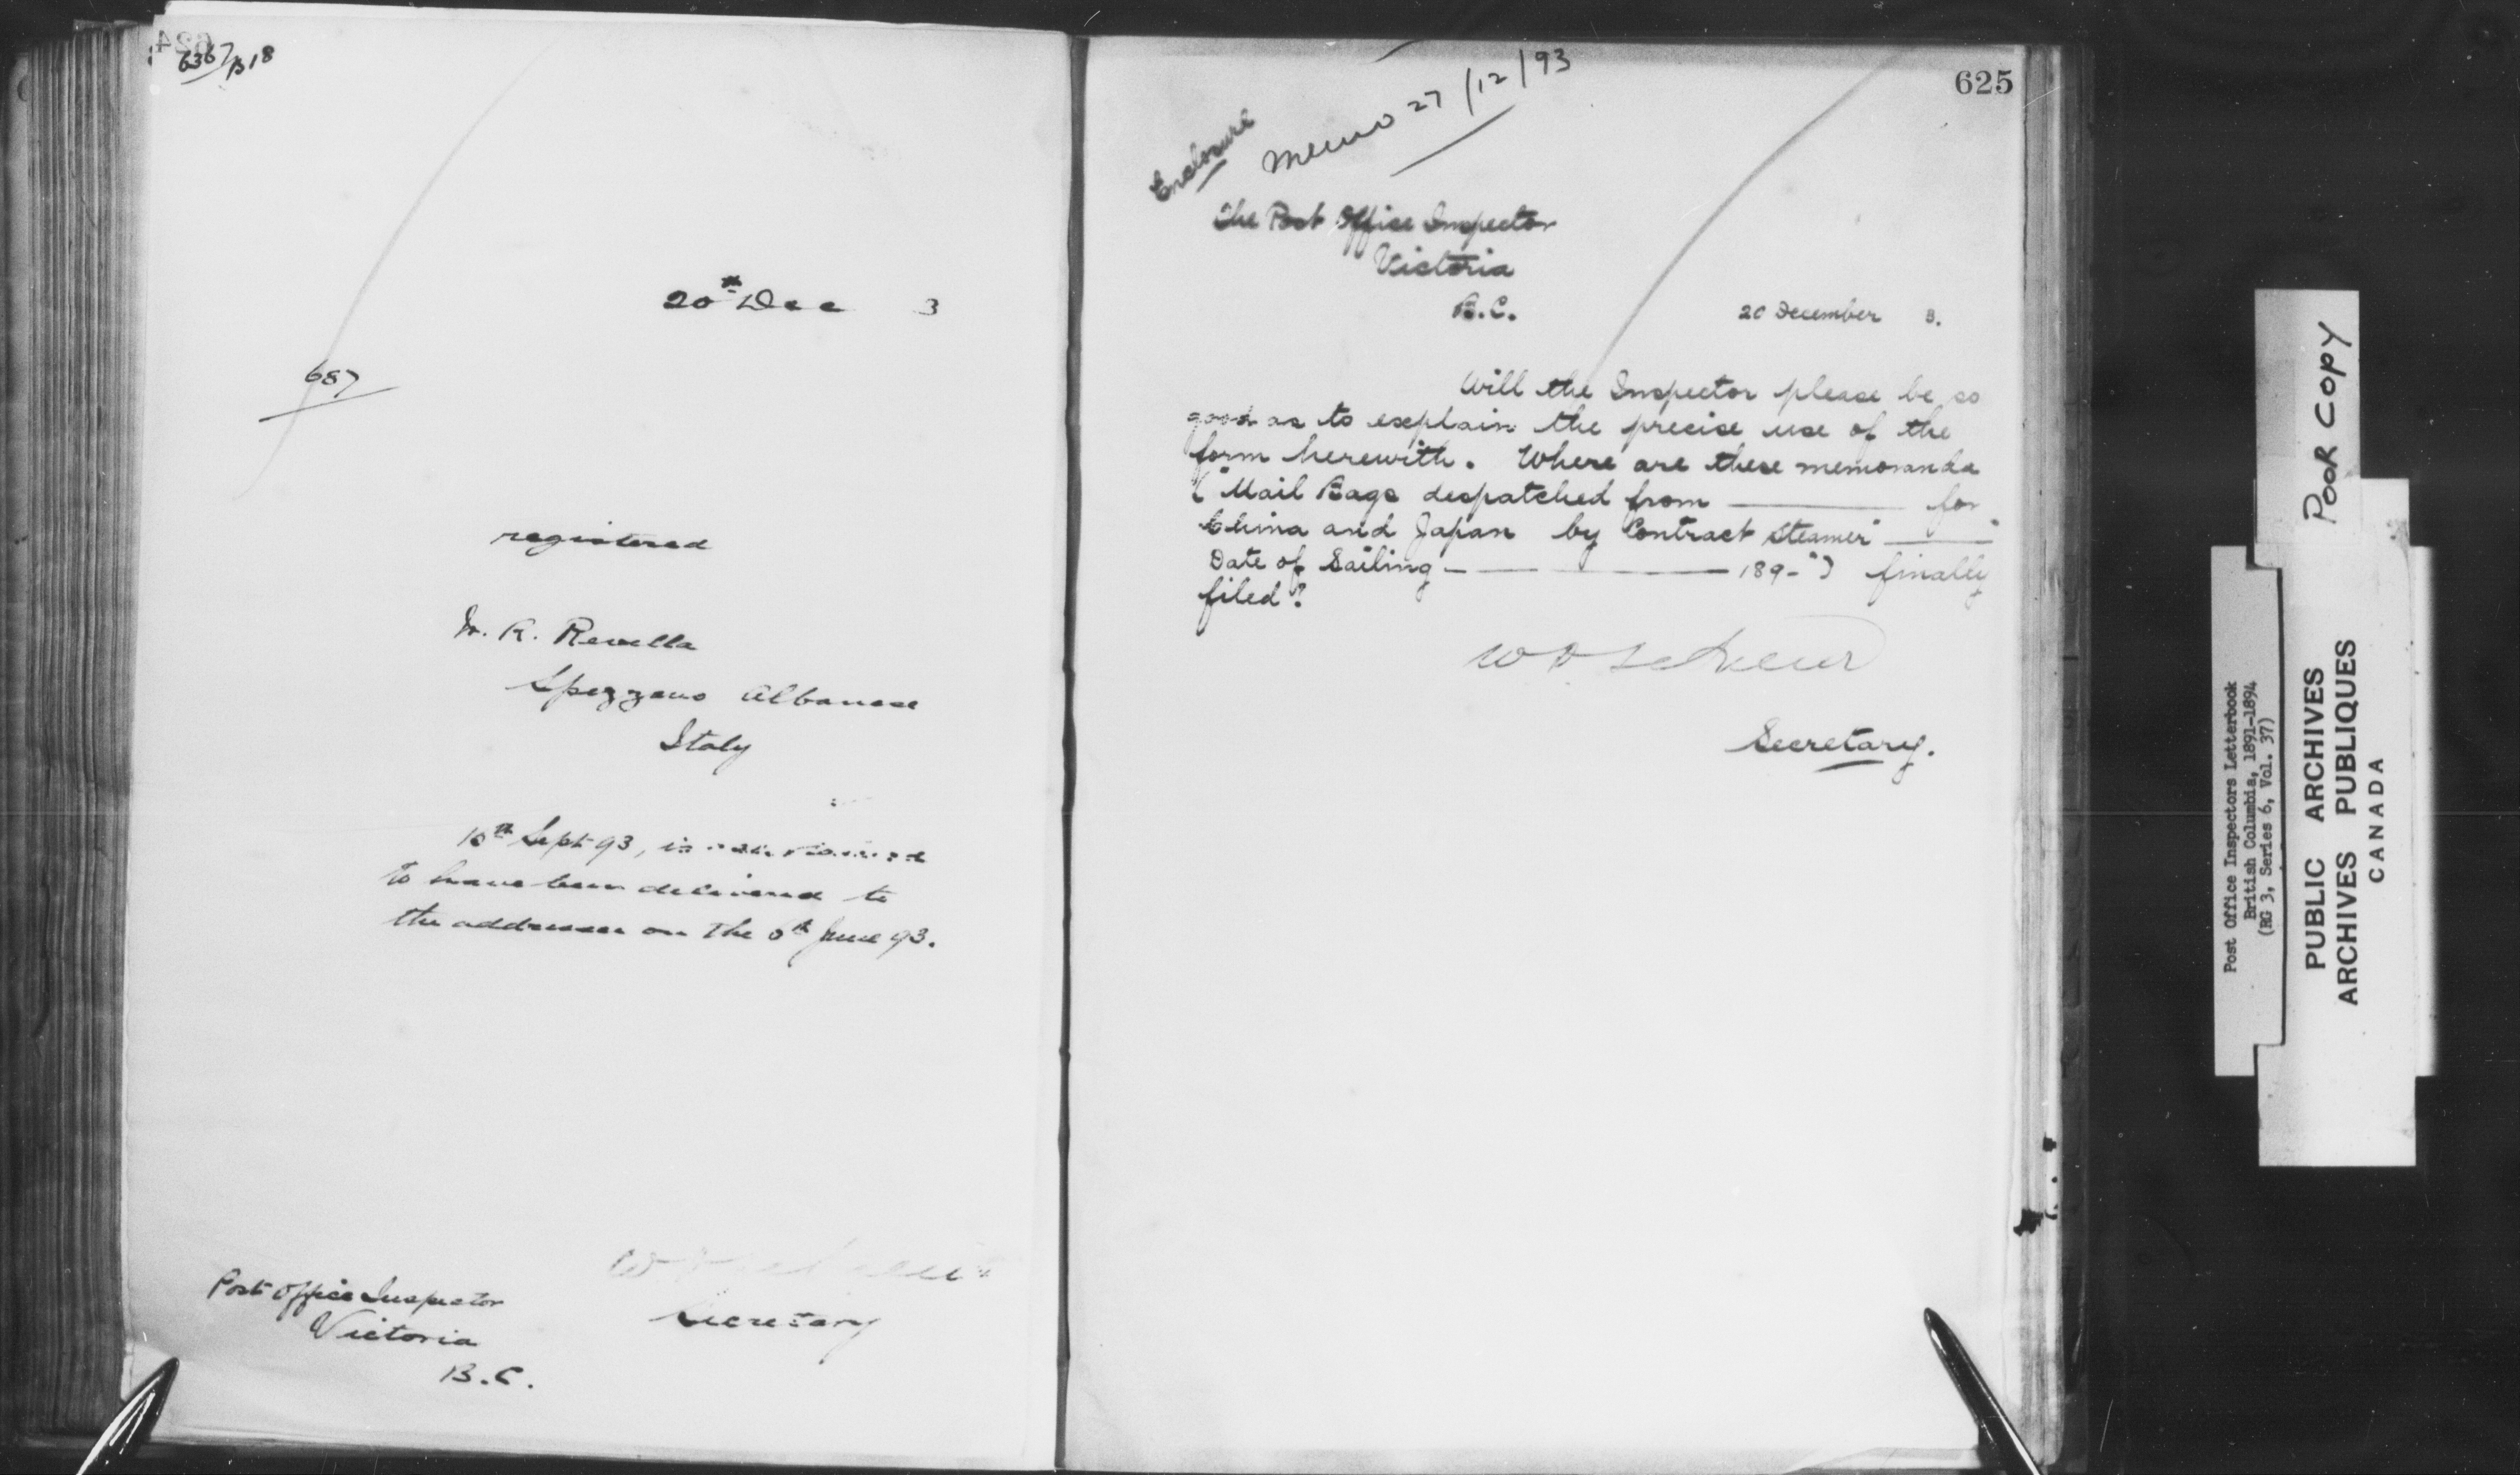 6367/B18
20th Dec 3
687
registered
R. Revella
Spezzano Albanese
Italy
Sept 93, is
to have been delivered to
the addressee on the 6th June 93.
Secretary
Post Office Inspector
Victoria
B.C.
625
Enclosure
Memo 27/12/93
The Post Office Inspector
Victoria
B.C.
20 December 3.
Will the Inspector please be so
good as to explain the precise use of the
form herewith. Where are these memoranda
("Mail Bags despatched from ——— for
China and Japan by Contract Steamer ———
Date of Sailing ——— 189-") finally
filed?
Secretary.
POOR COPY
Post Office Inspectors Letterbook
British Columbia, 1891-1894
(RG 3, Series 6, Vol. 37)
PUBLIC ARCHIVES
ARCHIVES PUBLIQUES
CANADA